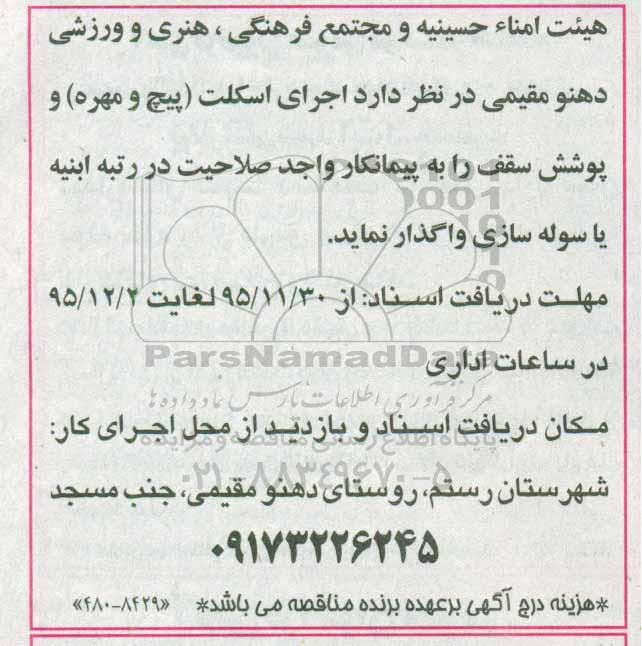 هیئت امناء حسینیه و مجتمع فرهنگی ، هنری و ورزشی
دهنو مقیمی در نظر دارد اجرای اسکلت (پیچ و مهره) و
پوشش سقف را به پیمانکار واجد صلاحیت در رتبه ابنیه
یا سوله سازی واگذار نماید.
مهلت دریافت اسناد: از ۹۵/۱۱/۳۰ لغایت ۹۵/۱۲/۲
ParsNamadData
در ساعات اداری
مرکز فرآوری اطلاعات پارس نماد داده ها
مکان دریافت اسناد و بازدید از محل اجرای کار:
پایگاه اطلاع رسانی مناقصه و مزایده
شهرستان رستم، روستای دهنو مقیمی، جنب مسجد
۰۲۱-۸۸۳۴۹۶۷۰-۵
۰۹۱۷۳۲۲۶۲۴۵
*هزینه درج آگهی برعهده برنده مناقصه می باشد* «۴۸۰-۸۴۲۹»